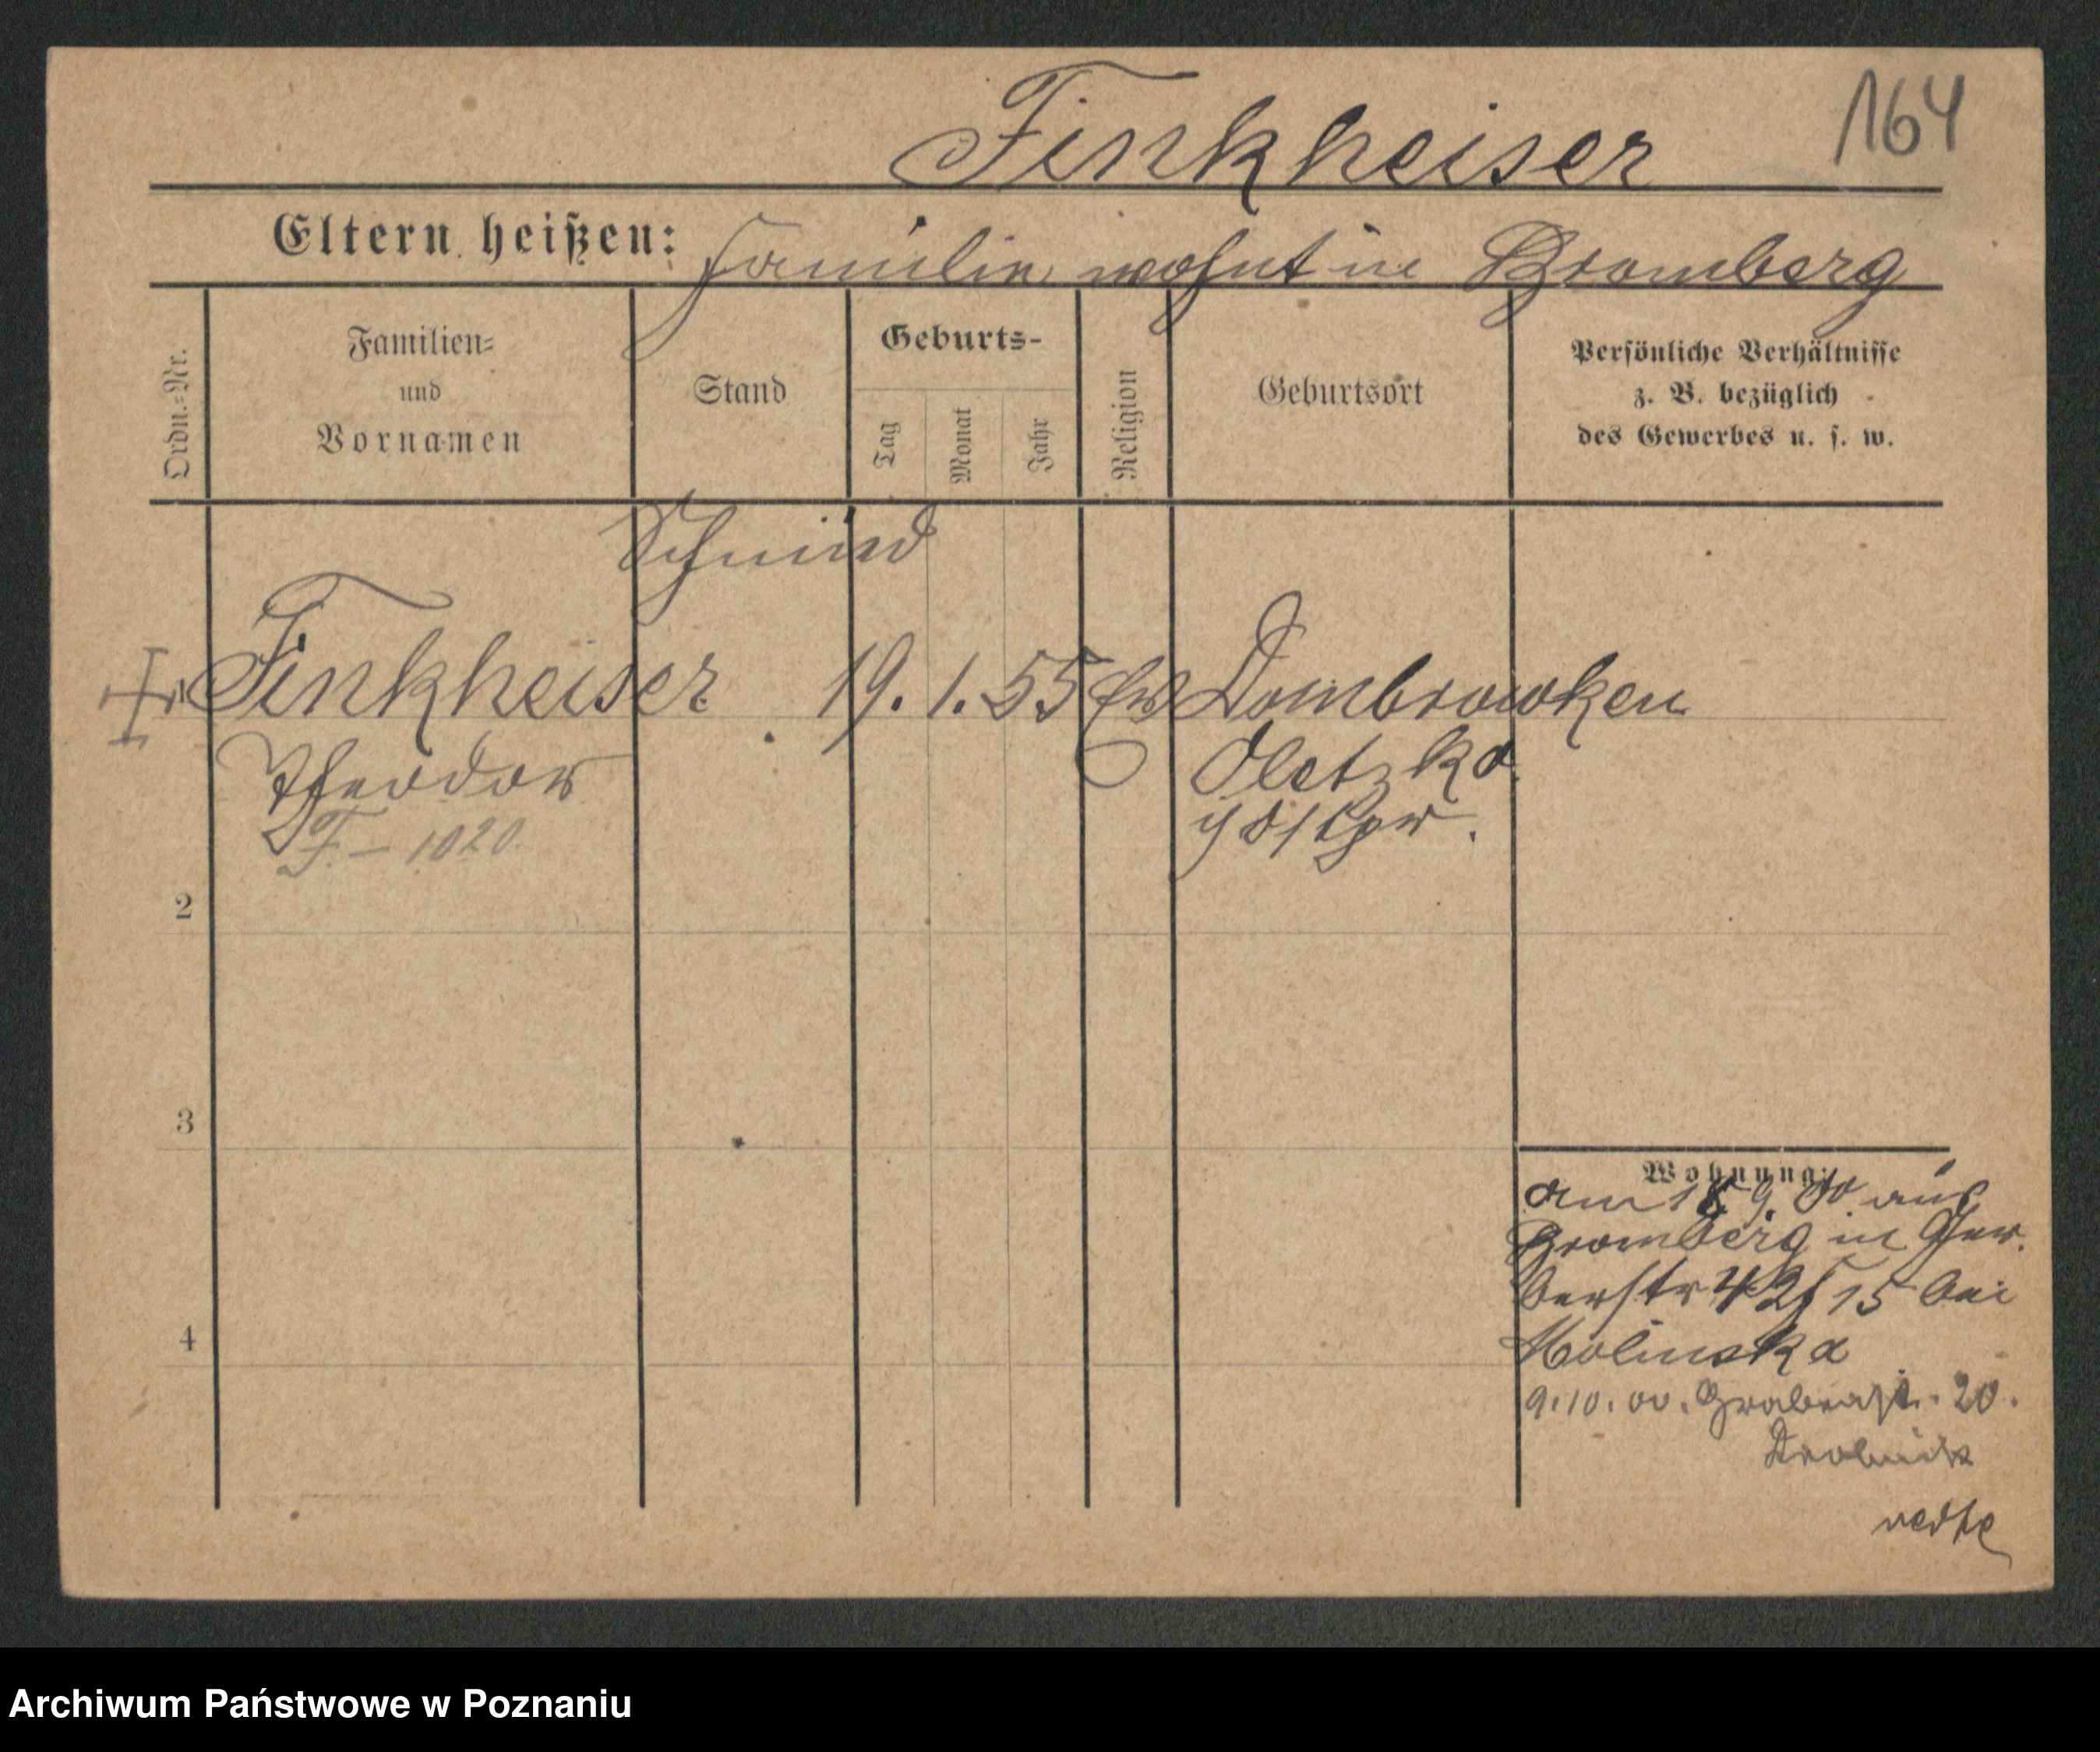 Finkheiser
164
Eltern heißen: Familie wohnt in Bromberg
Ordn.-Nr.
Familien-
und
Vornamen
Stand
Geburts-
Tag
Monat
Jahr
Religion
Geburtsort
Persönliche Verhältnisse
z. B. bezüglich
des Gewerbes u. s. w.
Schmied
1 Finkheiser 19. 1. 55 Ev Dombrowken
Theodor Oletzko
F. – 1020.
2
3
4
Wohnung:
am 18 9. 00 aus
Bromberg in Ger-
berstr 42/15 bei
Molinska
9.10.00. Grabenstr. 20.
Archiwum Państwowe w Poznaniu